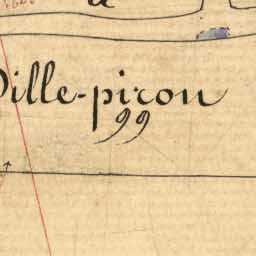 Ville-piron
99